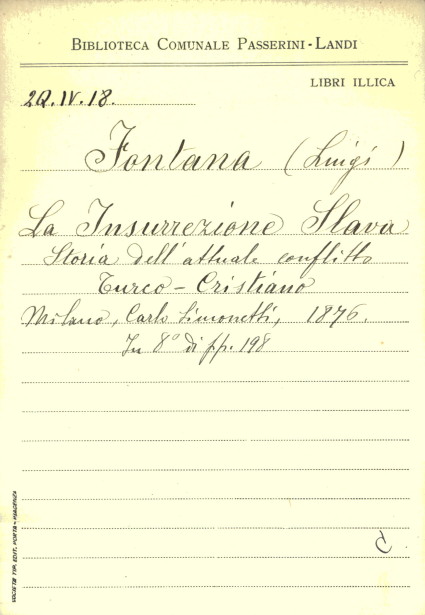 BIBLIOTECA COMUNALE PASSERINI-LANDI
LIBRI ILLICA
2Q.IV.18.
Fontana (Luigi)
La Insurrezione Slava
Storia dell'attuale conflitto
Turco-Cristiano
Milano, Carlo Simonetti, 1876.
In 8° di pp. 198
C
SOCIETÀ TIP. EDIT. PORTA - PIACENZA